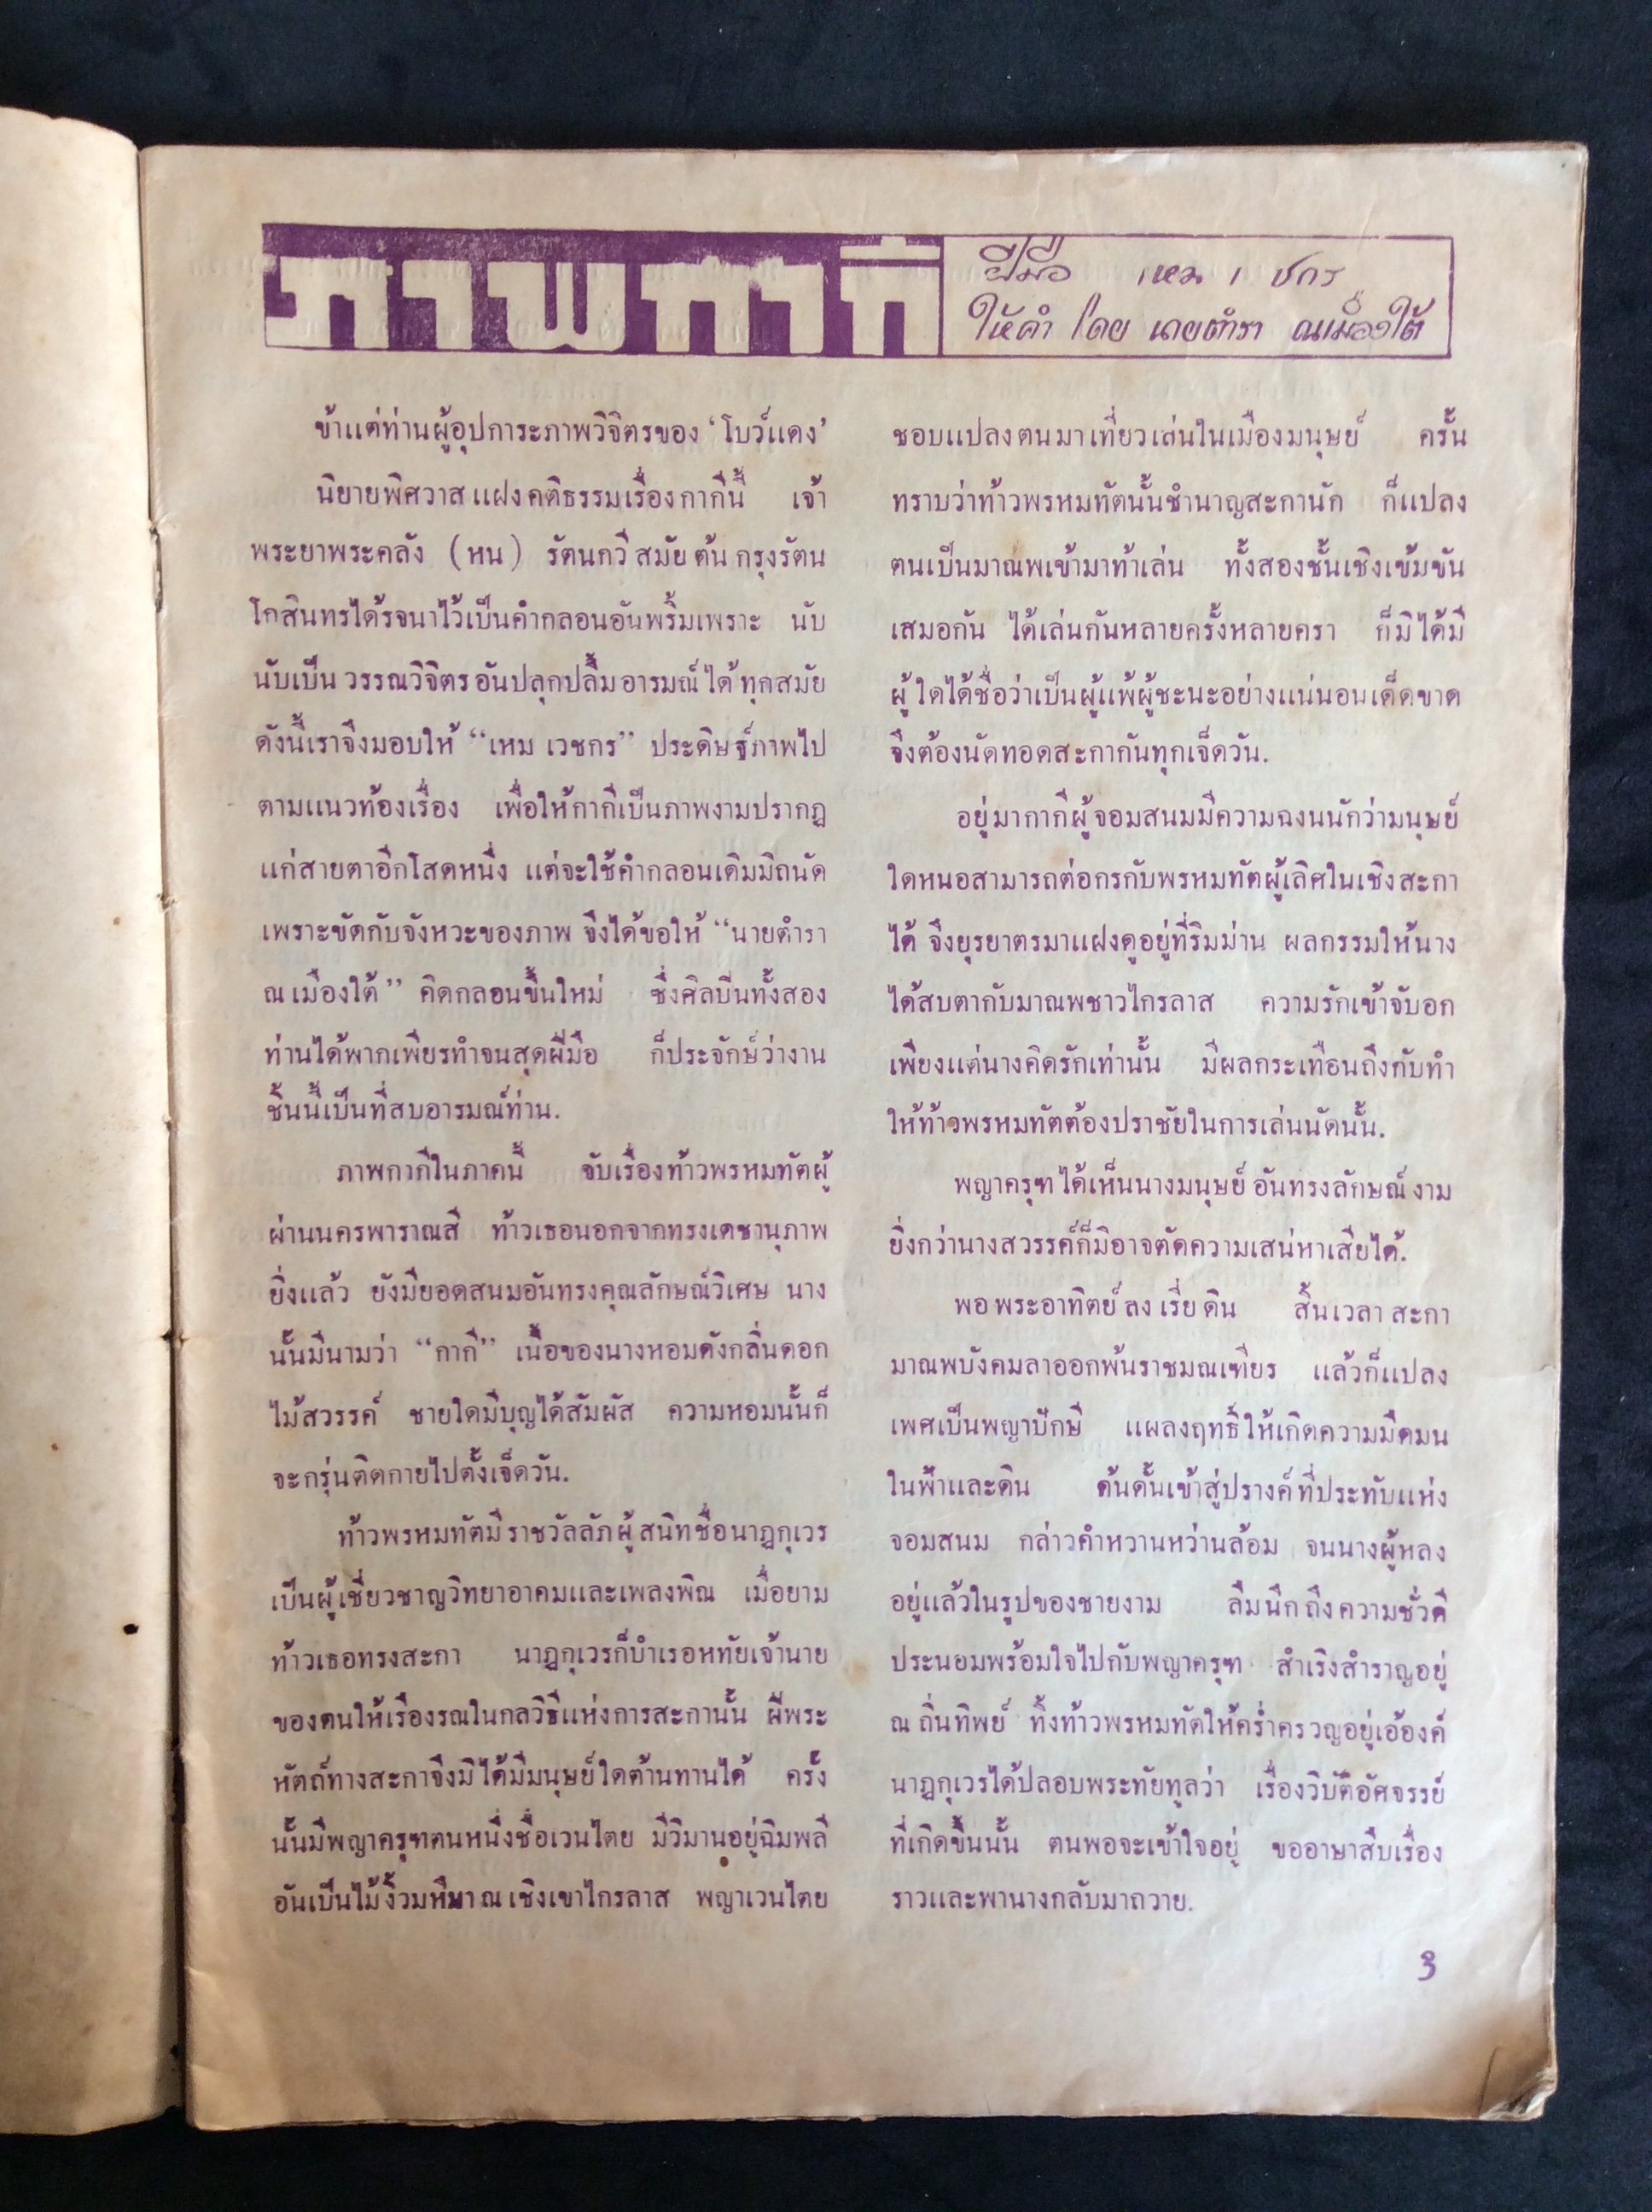 ภาพกากี
ฝีมือ เหม เวชกร
ให้คำ โดย นายตำรา ณเมืองใต้
ข้าแต่ท่านผู้อุปการะภาพวิจิตรของ ‘โบว์แดง’
นิยายพิศวาสแฝงคติธรรมเรื่องกากีนี้ เจ้า
พระยาพระคลัง (หน) รัตนกวีสมัยต้นกรุงรัตน
โกสินทรได้รจนาไว้เป็นคำกลอนอันพริ้มเพราะ นับ
นับเป็นวรรณวิจิตรอันปลุกปลื้มอารมณ์ได้ทุกสมัย
ดังนี้เราจึงมอบให้ “เหม เวชกร” ประดิษฐ์ภาพไป
ตามแนวท้องเรื่อง เพื่อให้กากีเป็นภาพงามปรากฏ
แก่สายตาอีกโสดหนึ่ง แต่จะใช้คำกลอนเดิมมิถนัด
เพราะขัดกับจังหวะของภาพ จึงได้ขอให้ “นายตำรา
ณ เมืองใต้” คิดกลอนขึ้นใหม่ ซึ่งศิลปินทั้งสอง
ท่านได้พากเพียรทำจนสุดฝีมือ ก็ประจักษ์ว่างาน
ชิ้นนี้เป็นที่สบอารมณ์ท่าน.
ภาพกากีในภาคนี้ จับเรื่องท้าวพรหมทัตผู้
ผ่านนครพาราณสี ท้าวเธอนอกจากทรงเดชานุภาพ
ยิ่งแล้ว ยังมียอดสนมอันทรงคุณลักษณ์วิเศษ นาง
นั้นมีนามว่า “กากี” เนื้อของนางหอมดังกลิ่นดอก
ไม้สวรรค์ ชายใดมีบุญได้สัมผัส ความหอมนั้นก็
จะกรุ่นติดกายไปตั้งเจ็ดวัน.
ท้าวพรหมทัตมีราชวัลลภผู้สนิทชื่อนาฏกุเวร
เป็นผู้เชี่ยวชาญวิทยาอาคมและเพลงพิณ เมื่อยาม
ท้าวเธอทรงสะกา นาฏกุเวรก็บำเรอหทัยเจ้านาย
ของตนให้เรืองรณในกลวิธีแห่งการสะกานั้น ฝีพระ
หัตถ์ทางสะกาจึงมิได้มีมนุษย์ใดต้านทานได้ ครั้ง
นั้นมีพญาครุฑตนหนึ่งชื่อเวนไตย มีวิมานอยู่ฉิมพลี
อันเป็นไม้งิ้วมหึมา ณ เชิงเขาไกรลาส พญาเวนไตย
ชอบแปลงตนมาเที่ยวเล่นในเมืองมนุษย์ ครั้น
ทราบว่าท้าวพรหมทัตนั้นชำนาญสะกานัก ก็แปลง
ตนเป็นมาณพเข้ามาท้าเล่น ทั้งสองชั้นเชิงเข้มขัน
เสมอกัน ได้เล่นกันหลายครั้งหลายครา ก็มิได้มี
ผู้ใดได้ชื่อว่าเป็นผู้แพ้ผู้ชะนะอย่างแน่นอนเด็ดขาด
จึงต้องนัดทอดสะกากันทุกเจ็ดวัน.
อยู่มากากีผู้จอมสนมมีความฉงนนักว่ามนุษย์
ใดหนอสามารถต่อกรกับพรหมทัตผู้เลิศในเชิงสะกา
ได้ จึงยุรยาตรมาแฝงดูอยู่ที่ริมม่าน ผลกรรมให้นาง
ได้สบตากับมาณพชาวไกรลาส ความรักเข้าจับอก
เพียงแต่นางคิดรักเท่านั้น มีผลกระเทือนถึงกับทำ
ให้ท้าวพรหมทัตต้องปราชัยในการเล่นนัดนั้น.
พญาครุฑได้เห็นนางมนุษย์อันทรงลักษณ์งาม
ยิ่งกว่านางสวรรค์ก็มิอาจตัดความเสน่หาเสียได้.
พอพระอาทิตย์ลงเรี่ยดิน สิ้นเวลาสะกา
มาณพบังคมลาออกพ้นราชมณเฑียร แล้วก็แปลง
เพศเป็นพญาปักษี แผลงฤทธิ์ให้เกิดความมืดมน
ในฟ้าและดิน ด้นดั้นเข้าสู่ปรางค์ที่ประทับแห่ง
จอมสนม กล่าวคำหวานหว่านล้อม จนนางผู้หลง
อยู่แล้วในรูปของชายงาม ลืมนึกถึงความชั่วดี
ประนอมพร้อมใจไปกับพญาครุฑ สำเริงสำราญอยู่
ณ ถิ่นทิพย์ ทิ้งท้าวพรหมทัตให้คร่ำครวญอยู่เอ้องค์
นาฏกุเวรได้ปลอบพระทัยทูลว่า เรื่องวิบัติอัศจรรย์
ที่เกิดขึ้นนั้น ตนพอจะเข้าใจอยู่ ขออาษาสืบเรื่อง
ราวและพานางกลับมาถวาย.
3